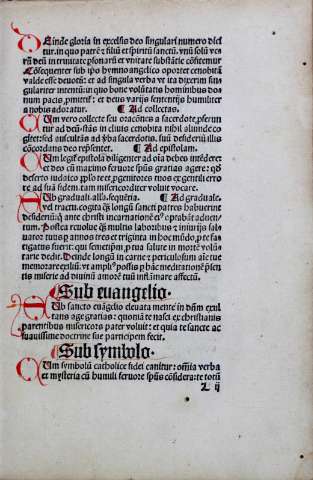 Deinde gloria in excelsis deo singulari numero dicit
tur. in quo patrē ⁊ filiū et spiritū sanctū. vnū solū ve
rū deū in trinitate psonarū et vnitate substātie cōfitemur
Cōsequenter sub ipo hymno angelico oportet cenobitā
valde esse deuotū: et ad singula verba vt ita dixerim sin
gulariter intentū: in quo bone volūtatis hominibus do
num pacis ꝓmittit: et deus varijs sententijs humiliter
a nobis adoratur. ¶ Ad collectas.
Cum vero collecte seu oracōnes a sacerdote ꝓferun
tur ad deū: stās in cluis cenobita nihil aliunde co
gitet: sed auscultās ad ꝟba sacerdotis. suū desideriū illis
cōcordans deo rep̄sentet. ¶ Ad epistolam.
Cum legit epistola diligenter ad oīa debes intēdere:
et deo cū maximo feruore sp̄us gratias agere: ꝙ
deserto iudaico pplo te et ꝓgenitores tuos ex gentili erro
re ad suā fidem tam misericorditer voluit vocare.
Sub graduali. alla. sequētia. ¶ Ad graduale.
vel tractū. cogita ꝙ longū sancti patres habuerint
desideriū: ꝗ ante christi incarnationē et ꝓbabāt aduen
tum. Postea reuolue ꝙ multis laboribus et iniurijs sal
uator tuus ꝑ annos tres et triginta in hoc mūdo ꝓ te fa
tigatus fuerit: qui semetipm ꝓ tua salute in mortē volū
tarie dedit. Deinde longū in carne ⁊ periculosum aīe tue
memorare exiliū: vt ampliꝰ possis ꝑ hāc meditationē plen
tis miserie ad diuinū amorē tuū inflāmare affectū.
Sub euangelio.
Sub sancto euāgelio eleuata mente in dn̄m exul
tans age gratias: quoniā te nasci ex christianis
parentibus misericors pater voluit: et quia te sancte ac
suauissime doctrine sue participem fecit.
Sub symbolo.
Cum symbolū catholice fidei canitur: omīa verba
et mysteria cū humili feruore sp̄us cōsidera: te totū
L ij